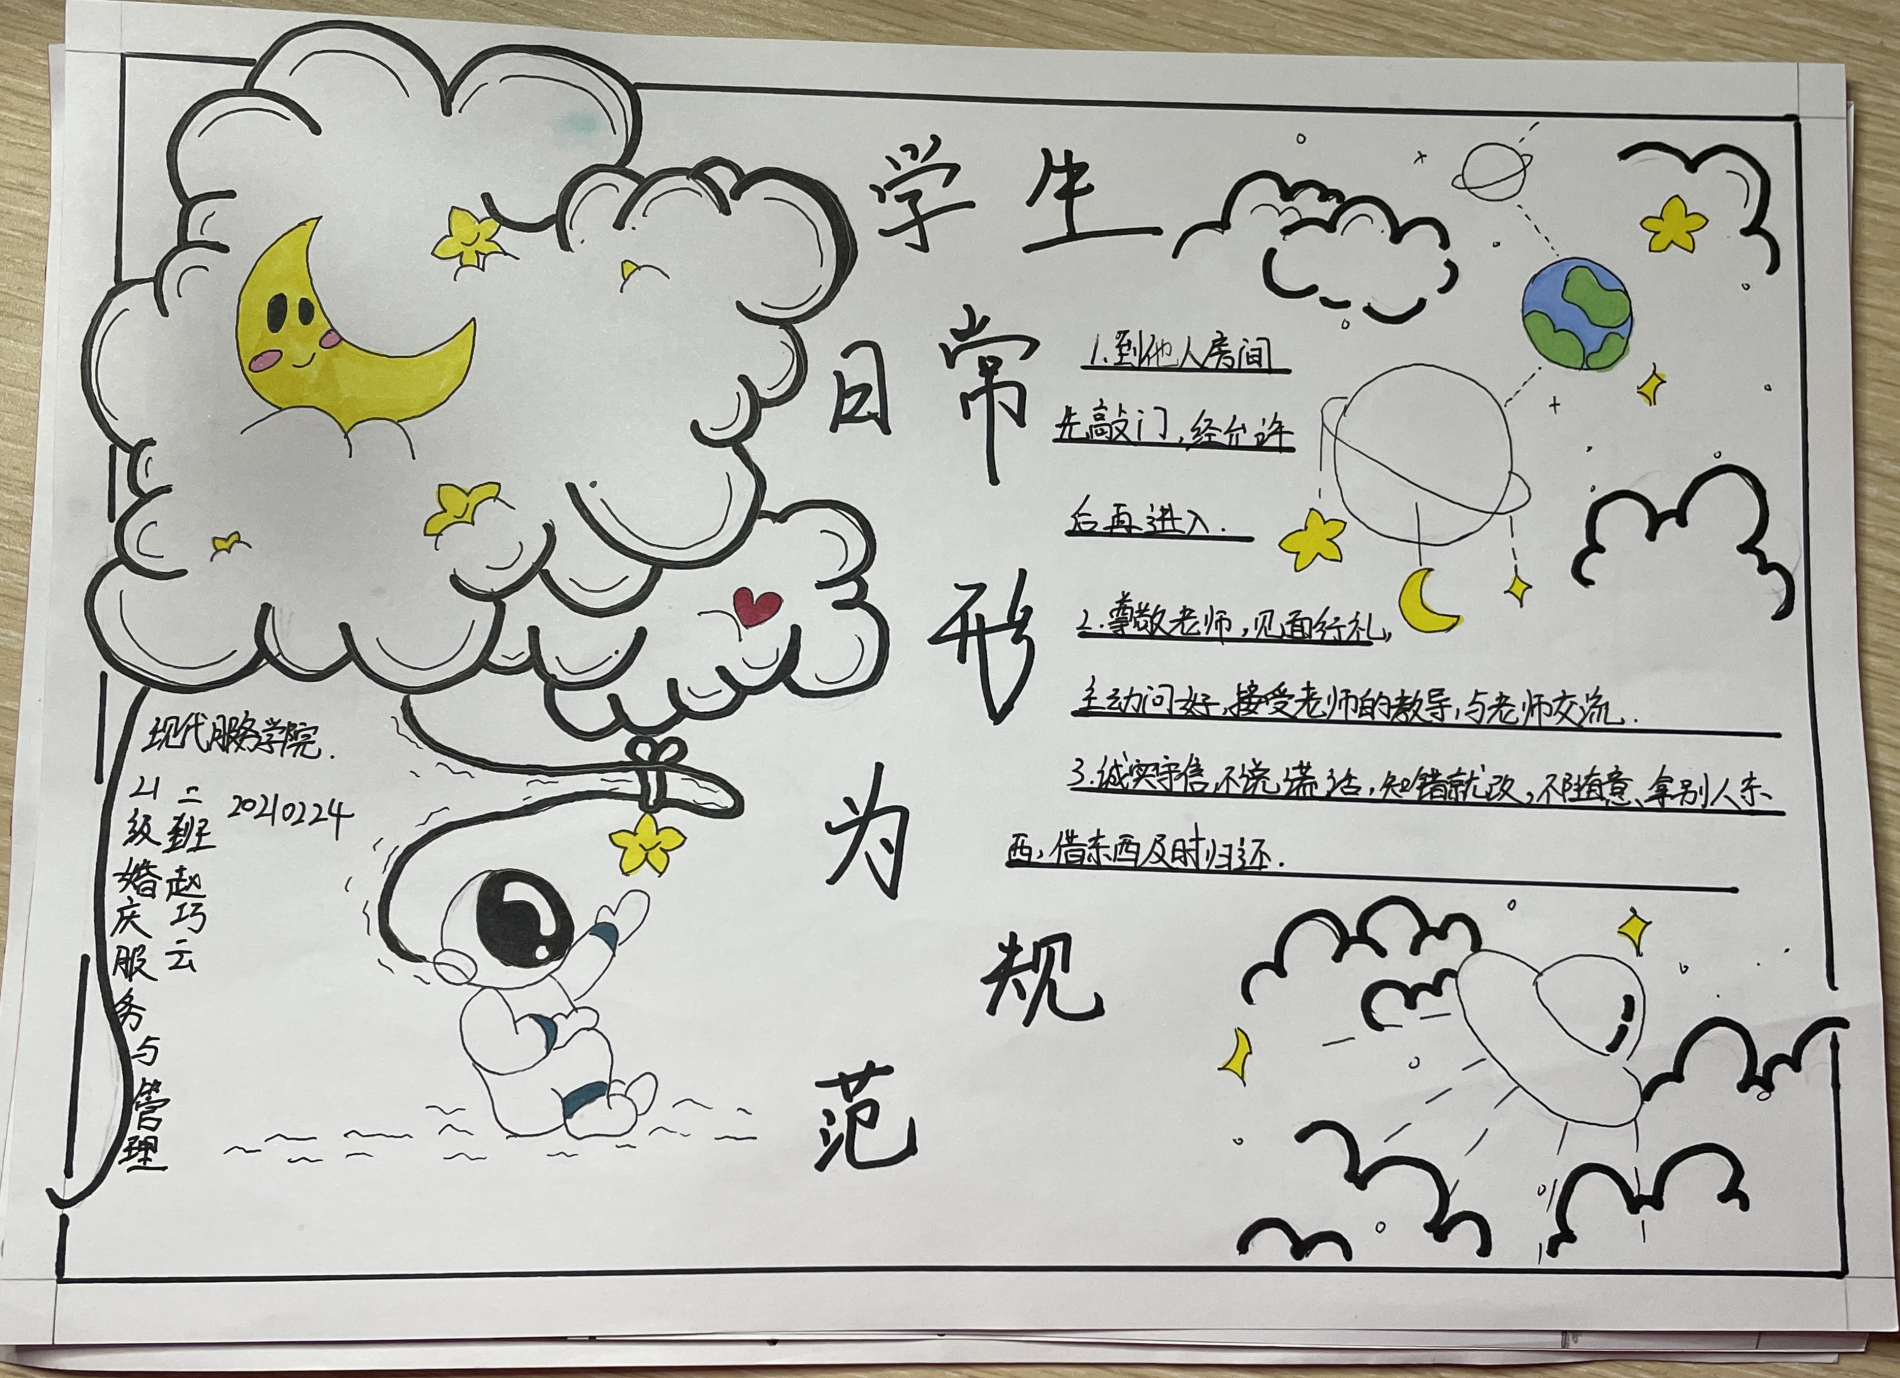 学生
日常
形
为
规
范
1.到他人房间
先敲门,经允许
后再进入.
2.尊敬老师,见面行礼,
主动问好,接受老师的教导,与老师交流.
3.诚实守信,不说谎话,知错就改,不随意、拿别人东
西,借东西及时归还.
现代服务学院.
21级婚庆服务与管理
二班赵巧云
20210224